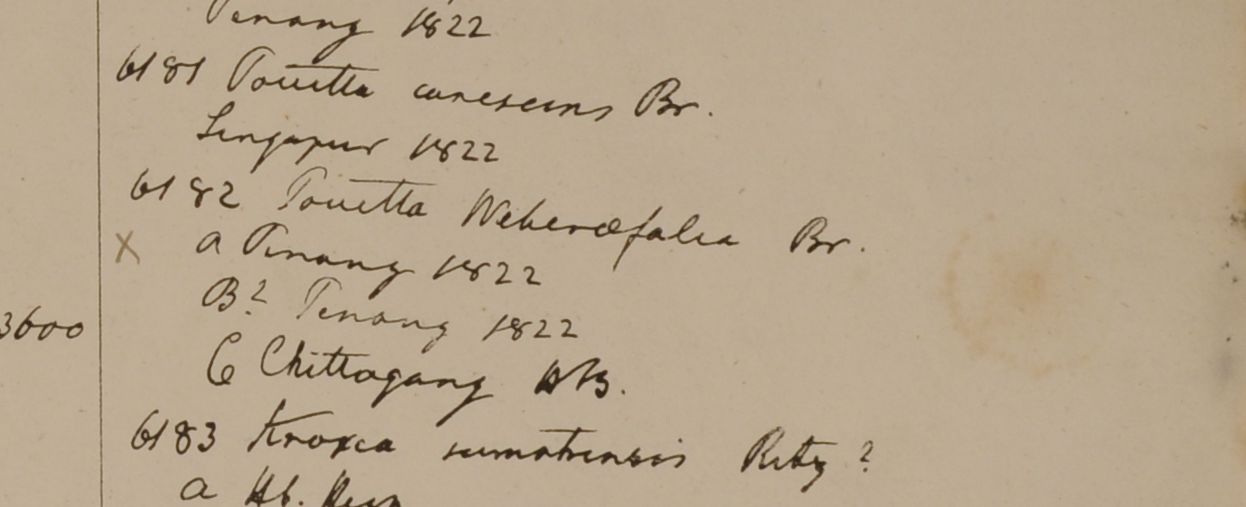 Penang 1822
6181 Pavetta canescens Br.
Singapur 1822
6182 Pavetta Weberæfolia Br.
X a Penang 1822
B? Penang 1822
3600
C Chittagang HB.
6183 Knoxia sumatrensis Retz?
a Hb.